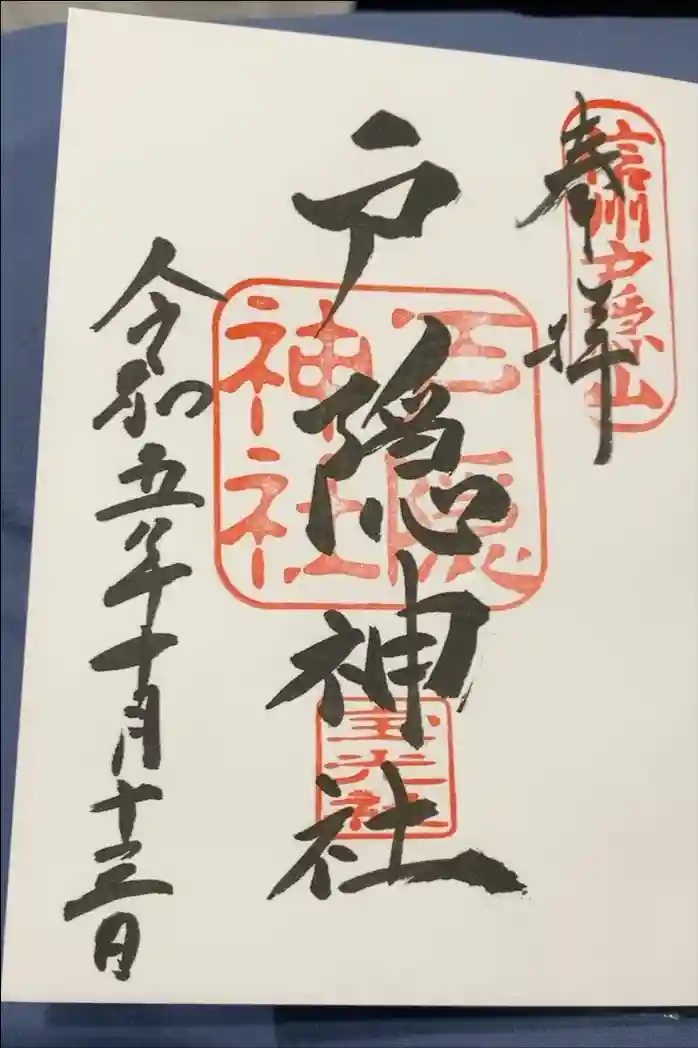 奉拝
信州戸隠山
戸隠神社
戸隠
神社
宝光社
令和五年十月十三日